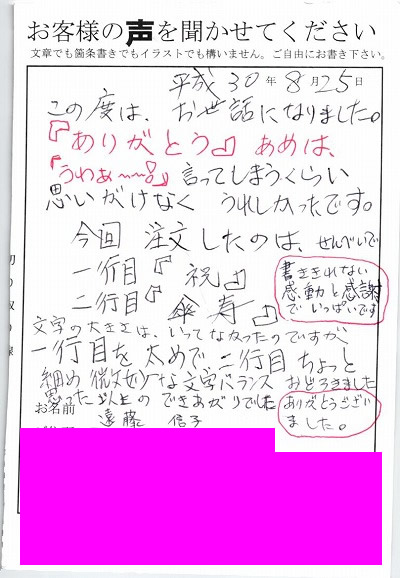 お客様の声を聞かせてください
文章でも箇条書きでもイラストでも構いません。ご自由にお書き下さい。
平成 30 年 8 月 25 日
この度は、お世話になりました。
『ありがとう』あめは、
『うわぁ〜〜!』言ってしまうくらい
思いがけなく うれしかったです。
今回 注文したのは、せんべいで
一行目『祝』
二行目『傘寿』
書ききれない
感動と感謝
でいっぱいです
文字の大きさは、いってなかったのですが
一行目を太めで二行目ちょっと
細め 微妙な文字バランス おどろきました
思った以上の できあがりでした
ありがとうござい
ました。
お名前
遠藤 信子